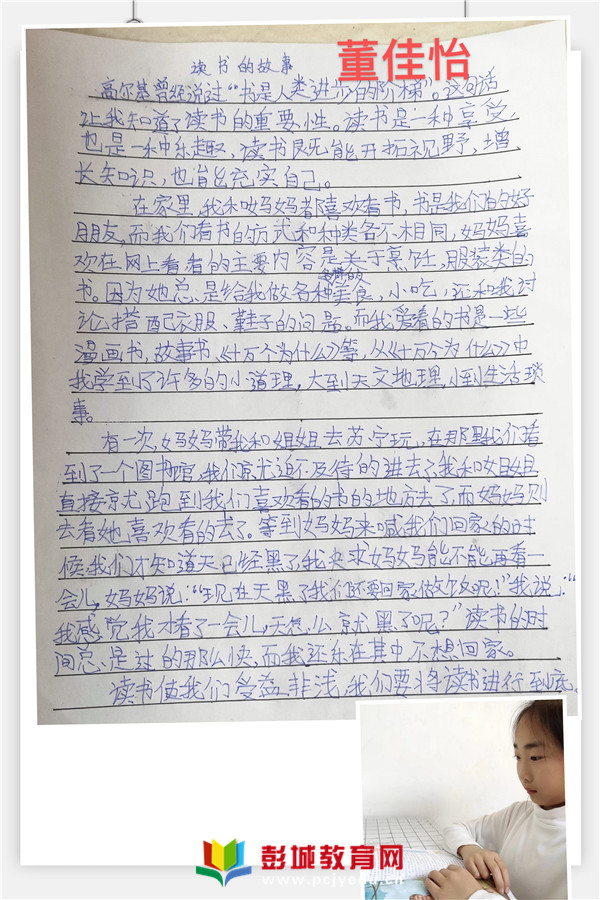 董佳怡
读书的故事
高尔基曾经说过“书是人类进步的阶梯”。这句话
让我知道了读书的重要性。读书是一种享受,
也是一种乐趣,读书既能开拓视野,增
长知识,也能充实自己。
在家里,我和妈妈都喜欢看书,书是我们的好
朋友,而我们看书的方式和种类各不相同,妈妈喜
欢在网上看看的主要内容是关于烹饪,服装类的
书。因为她总是给我做各种各样的美食,小吃,还和我讨
论搭配衣服、鞋子的问题。而我爱看的书是一些
漫画书,故事书,《十万个为什么》等,从《十万个为什么》中
我学到了许多的小道理,大到天文地理,小到生活琐
事。
有一次,妈妈带我和姐姐去苏宁玩,在那里我们看
到了一个图书馆,我们就迫不及待的进去了我和姐姐
直接就跑到我们喜欢看的书的地方去了而妈妈则
去看她喜欢看的去了。等到妈妈来喊我们回家的时
候,我们才知道天已经黑了,我央求妈妈能不能再看一
会儿,妈妈说:“现在天黑了我们还要回家做饭呢!”我说:“
我感觉我才看了一会儿,天怎么就黑了呢?”读书的时
间总是过的那么快,而我还乐在其中不想回家。
读书使我们受益非浅,我们要将读书进行到底。
彭城教育网
www.pcjyedu.cn